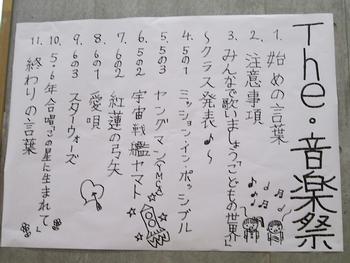 The・音楽祭
1. 始めの言葉
2. 注意事項
3. みんなで歌いましょう「こどもの世界」
～クラス発表♪～
4. 5の1 ミッション・イン・ポッシブル
5. 5の3 ヤングマンYMCA
6. 5の2 宇宙戦艦ヤマト
7. 6の2 紅蓮の弓矢
8. 6の1 愛唄
9. 6の3 スターウォーズ
10. 5・6年合唱「この星に生まれて」
11. 終わりの言葉